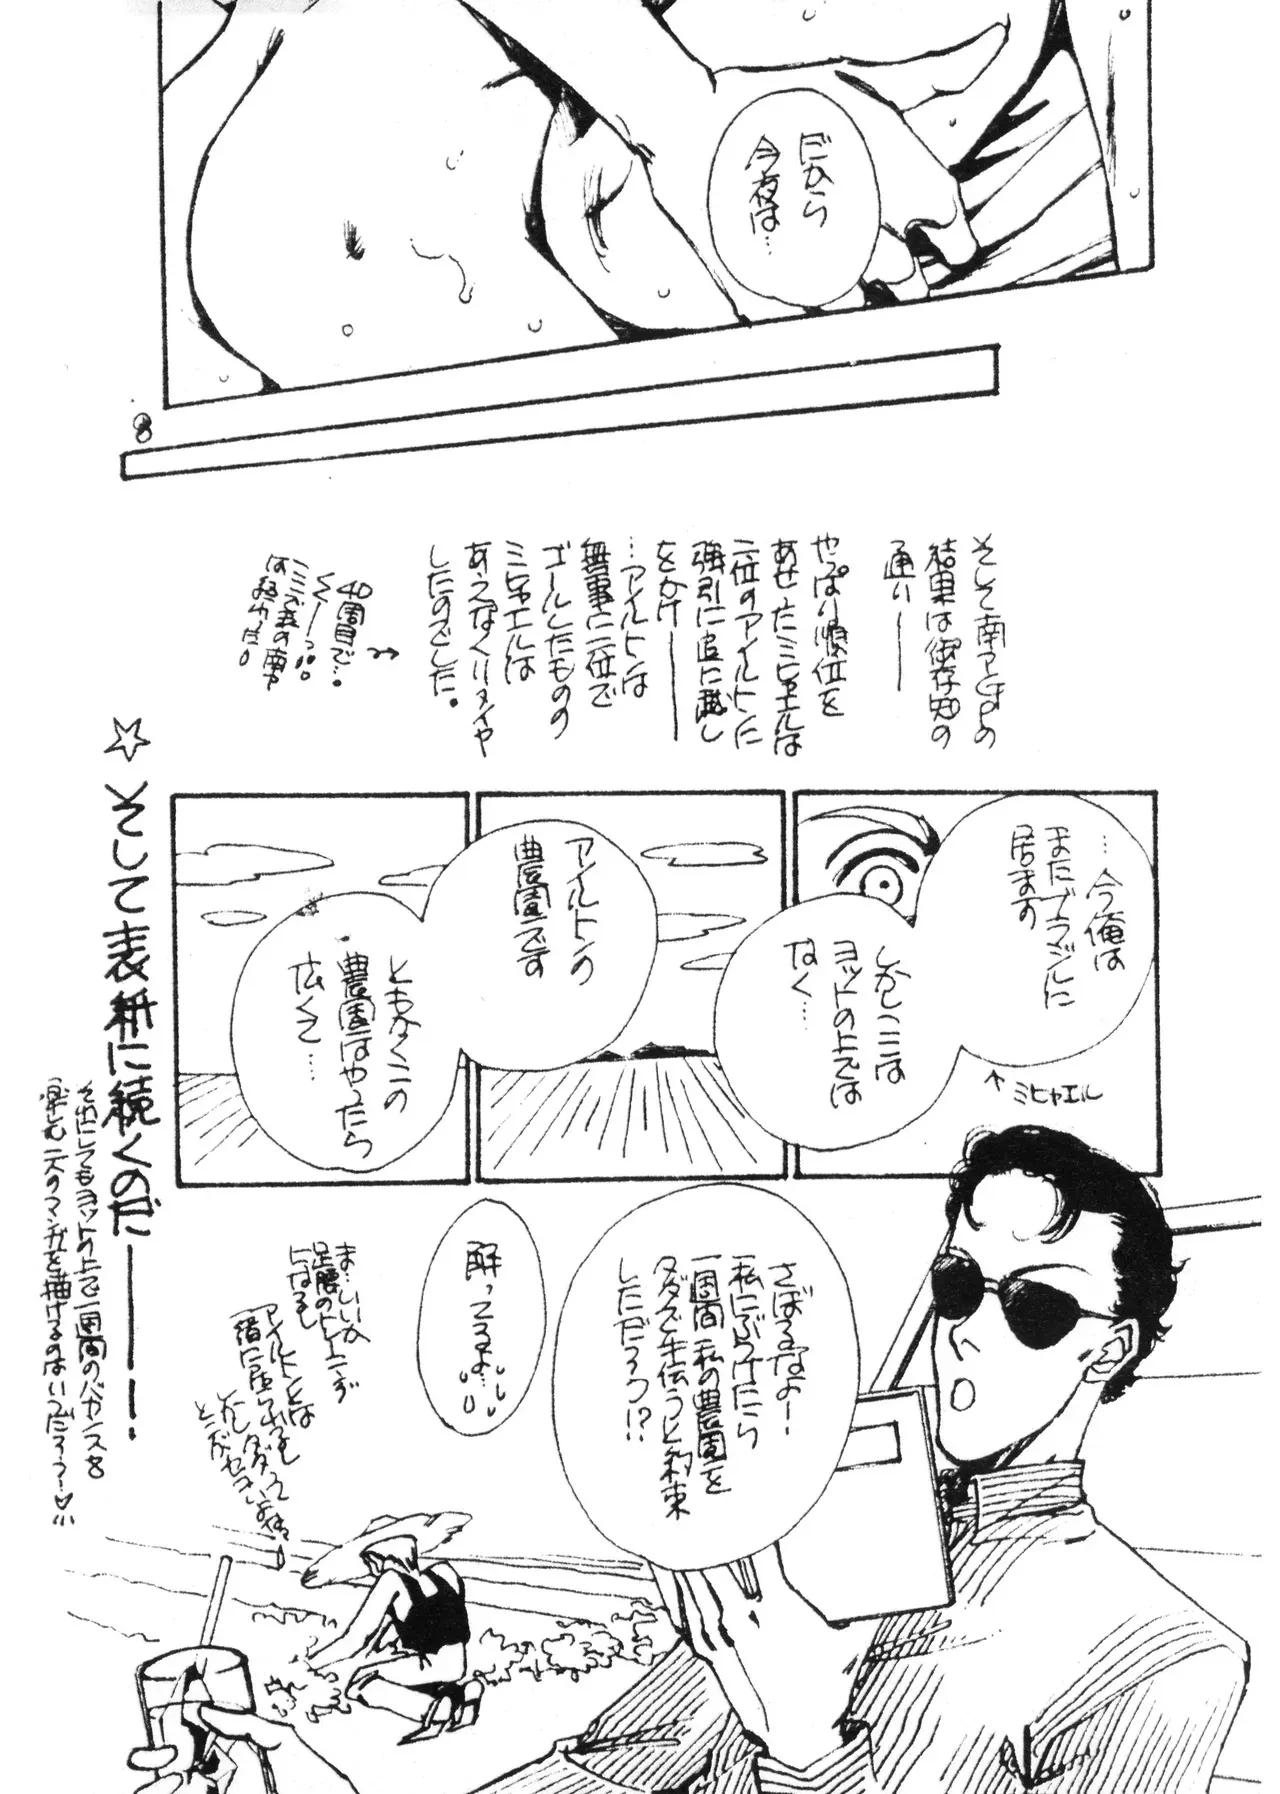 だから
今夜は…
8
そして南アGPの
結果は御存知の
通り——
やっぱり順位を
あせったミヒャエルは
二位のアイルトンに
強引に追い越し
をかけ——
…アイルトンは
無事に二位で
ゴールしたものの
ミヒャエルは
あえなくリタイヤ
したのでした。
40周目で…。
くくーっ
ミヒャエルの南ア
は終わった!
…今俺は
まだブラジルに
居ます
しかしここは
ヨットの上では
なく…
↑ミヒャエル
アイルトンの
農園です
ともかくこの
農園はやったら
広くて…
さぼるなよー
私にぶつけたら
一週間私の農園を
タダで手伝うと約束
しただろう!?
解ってるよ…
ま…いいか
足腰のトレーニングに
はなるし
アイルトンとは
一緒に居れるし
☆そして表紙に続くのだ———!
それにしてもヨットの上で一週間のバカンスを
楽しむ二人のマンガを描けるのはいつだろうー♡